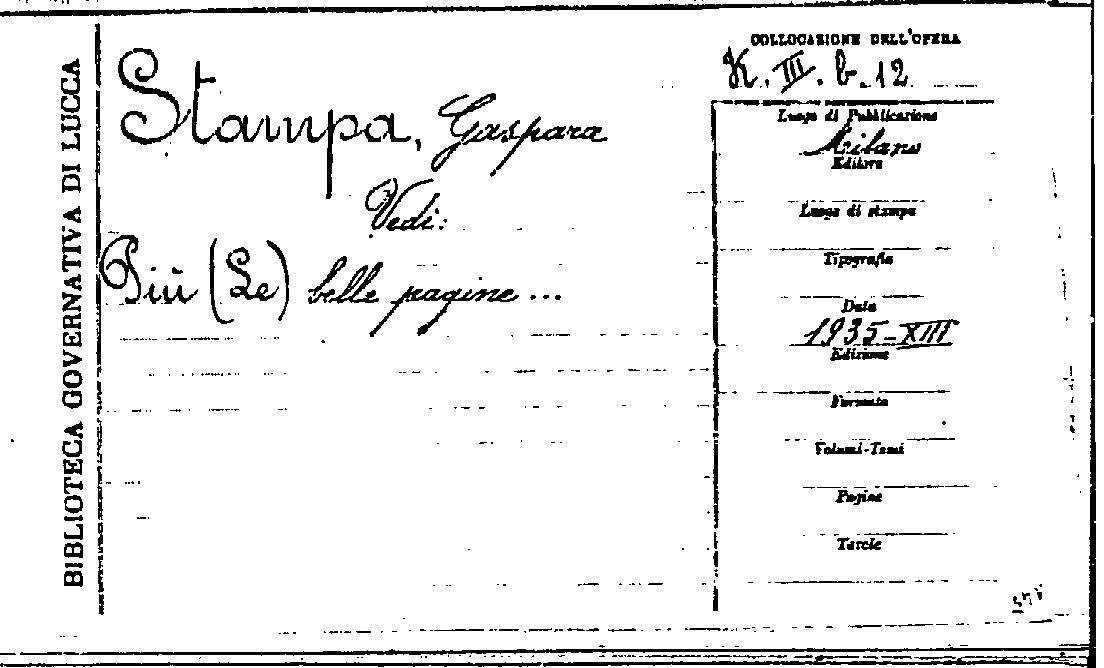 BIBLIOTECA GOVERNATIVA DI LUCCA
Stampa, Gaspara
Vedi:
Più (Le) belle pagine...
COLLOCAZIONE DELL'OPERA
K. III. b. 12
Luogo di Pubblicazione
Milano
Editore
Luogo di stampa
Tipografia
Data
1935-XIII
Edizione
Formato
Volumi-Tomi
Pagine
Tavole